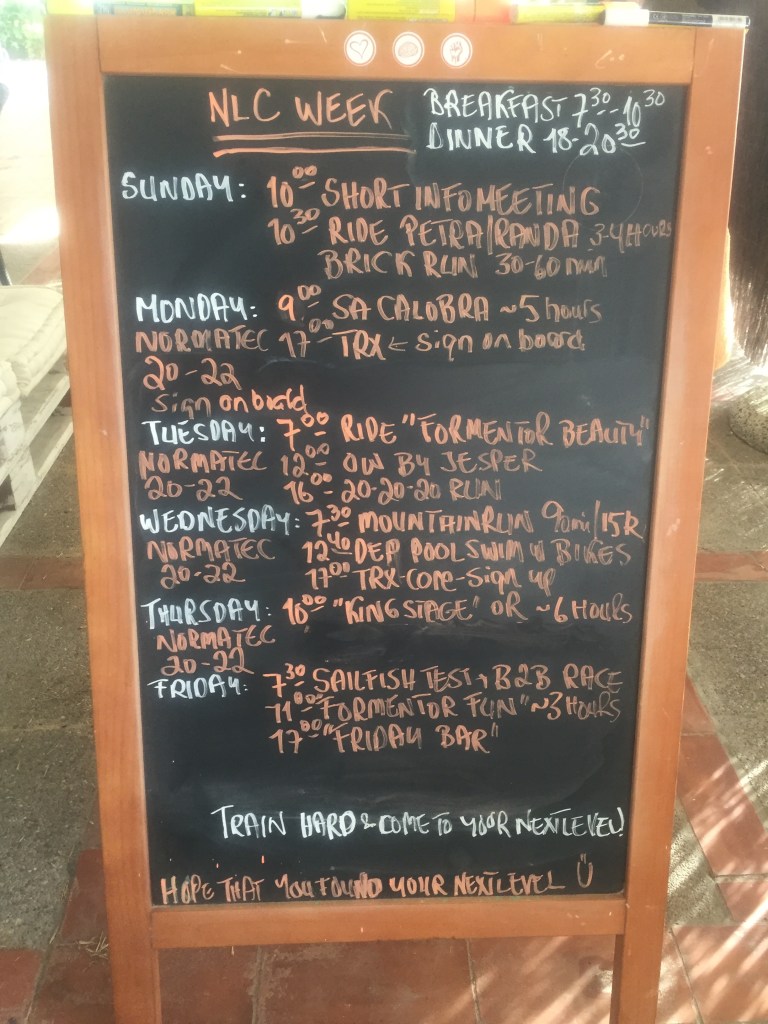 NLC WEEK
BREAKFAST 7³⁰-10³⁰
DINNER 18-20³⁰
SUNDAY: 10⁰⁰ SHORT INFOMEETING
10³⁰ RIDE PETRA/RANDA 3-4 HOURS
BRICK RUN 30-60 min
MONDAY: 9⁰⁰ SA CALOBRA ~5 hours
NORMATEC 17⁰⁰ TRX ← Sign on board
20-22
Sign on board
TUESDAY: 7⁰⁰ RIDE "FORMENTOR BEAUTY"
NORMATEC 12⁰⁰ OW BY JESPER
20-22 16⁰⁰ 20-20-20 RUN
WEDNESDAY: 7³⁰ MOUNTAINRUN 90mi/15K
NORMATEC 12⁴⁰ DEP POOLSWIM BIKES
20-22 17⁰⁰ TRX-CORE-Sign up
THURSDAY: 10⁰⁰ "KINGSTAGE" OR ~6 HOURS
NORMATEC
20-22
FRIDAY: 7³⁰ SAILFISH TEST + B2B RACE
11⁰⁰ "FORMENTOR FUN" ~3 HOURS
17⁰⁰ "FRIDAY BAR"
TRAIN HARD & COME TO YOUR NEXTLEVEL!
HOPE THAT YOU FOUND YOUR NEXTLEVEL